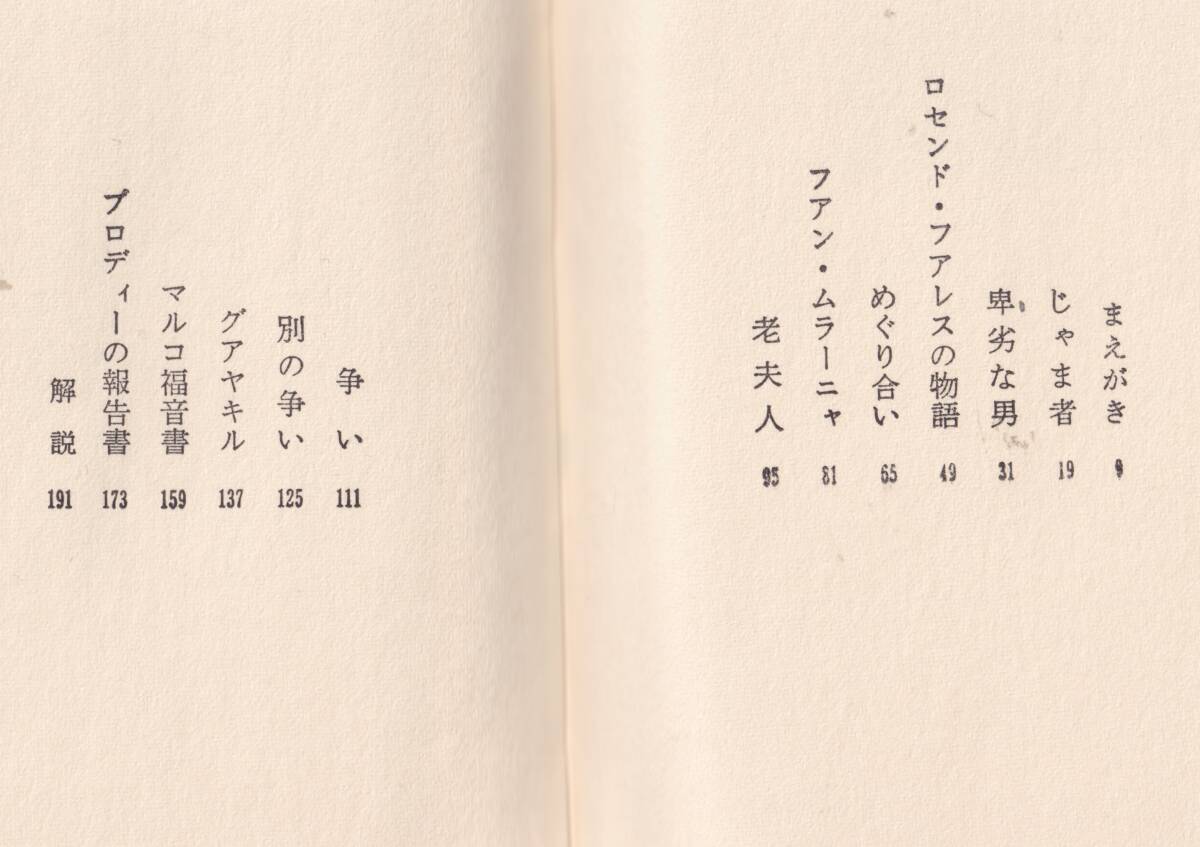 まえがき 9
じゃま者 19
卑劣な男 31
ロセンド・フアレスの物語 49
めぐり合い 65
フアン・ムラーニャ 81
老夫人 95
争い 111
別の争い 125
グアヤキル 137
マルコ福音書 159
ブロディーの報告書 173
解説 191